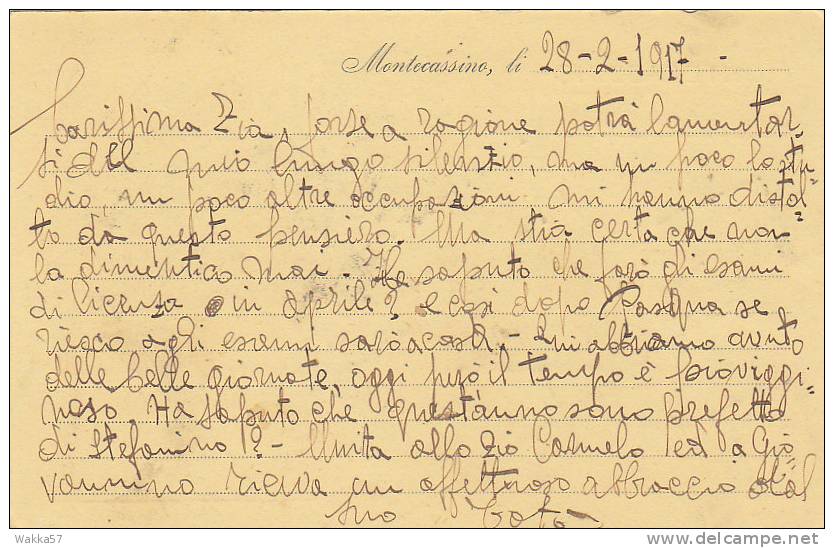 Montecassino, li 28-2-1917-
Carissima Zia, forse a ragione potrà lamentar-
si del mio lungo silenzio, ma un poco lo stu=
dio, un poco altre occupazioni, mi hanno distol=
to da questo pensiero. Ma stia certa che non
la dimentico mai. Ha saputo che farò gli esami
di licenza in Aprile? e così dopo Pasqua se
riesco agli esami sarò a casa. - Qui abbiamo avuto
delle belle giornate, oggi però il tempo è piovoviggi=
noso. Ha saputo che quest'anno sono prefetto
di Stefanino? - Unita allo Zio Carmelo ed a Gio=
vannino riceva un affettuoso abbraccio dal
suo
Wakka57
delcampe.net